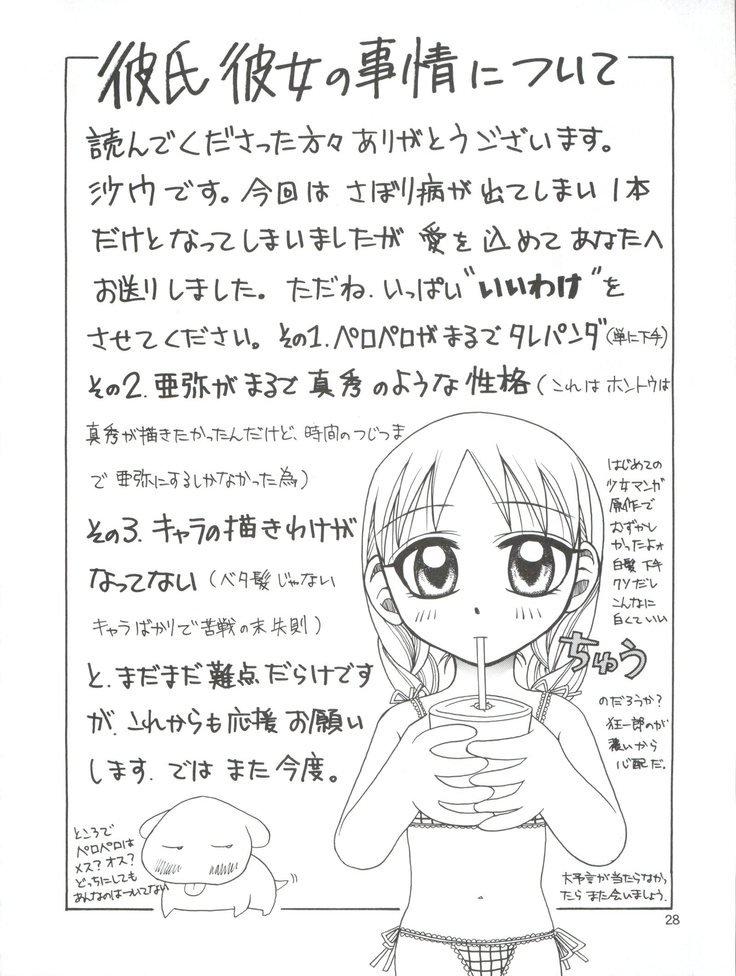 彼氏彼女の事情について
読んでくださった方々ありがとうございます。
沙ウです。今回は さぼり病が出てしまい 1本
だけとなってしまいましたが 愛を込めてあなたへ
お送りしました。ただね、いっぱい"いいわけ"を
させてください。その1.ペロペロがまるでタレパンダ(単に下手)
その2.亜弥がまるで真秀のような性格(これはホントウは
真秀が描きたかったんだけど、時間のつじつま
で亜弥にするしかなかった為)
その3.キャラの描きわけが
なってない(ベタ髪じゃない
キャラばかりで苦戦の末失則)
と、まだまだ難点だらけです
が、これからも応援お願い
します。では また今度。
はじめての
少女マンガ
原作で
むずかし
かったよォ
白髪下手
クソだし
こんなに
白くていい
のだろうか?
狂一郎のが
濃いから
心配だ。
ちゅう
ところで
ペロペロは
メス?オス?
どっちにしても
あんなのはついてない
大予言が当たらなかっ
たら また会いましょう。
28